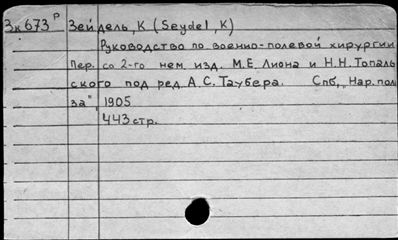 Зк 673 Р Зейдель, К (Seydel, K)
Руководство по военно-полевой хирургии
Пер. со 2-го нем. изд. М.Е. Лиона и Н.Н. Топаль
ского под ред А.С. Таубера. Спб, „Нар. поль
за", 1905
443 стр.